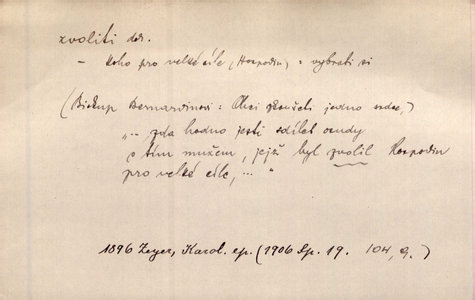 zvoliti dok.
– koho pro velké cíle (Hospodin) = vybrati si
(Biskup Bernardinovi: Chci zkoušeti jedno srdce,)
„.. zda hodno jesti sdílet osudy
s tím mužem, jejž byl zvolil Hospodin
pro velké cíle, ... "
1896 Zeyer, Karol. ep. (1906 Sp. 19. 104, 9.)